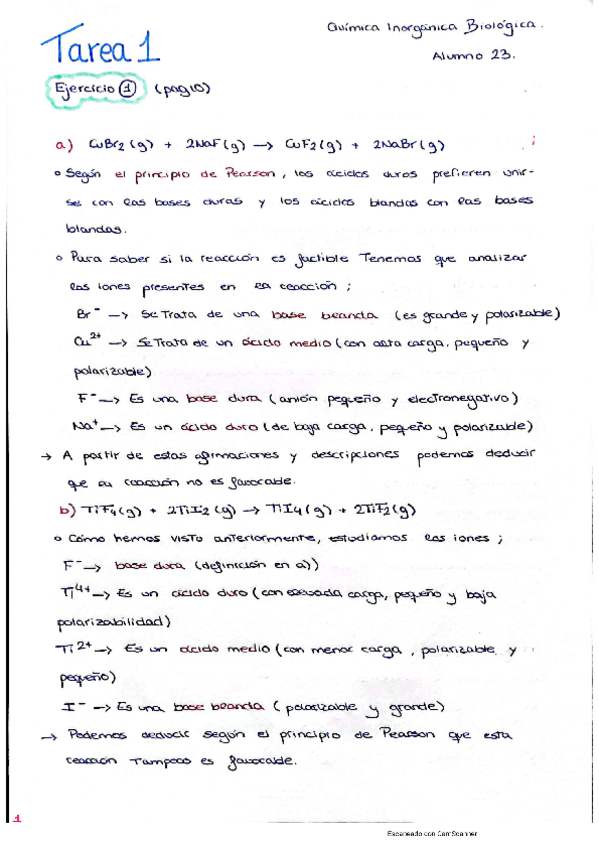 Química Inorgánica Biológica.
Tarea 1
Alumno 23.
Ejercicio 1 (pag 10)
a) CuBr2 (g) + 2NaF (g) → CuF2 (g) + 2NaBr (g)
Según el principio de Pearson, los ácidos duros prefieren unir-
se con las bases duras y los ácidos blandos con las bases
blandas.
Para saber si la reacción es factible Tenemos que analizar
los iones presentes en la reacción;
Br⁻ → Se Trata de una base blanda (es grande y polarizable)
Cu²⁺ → Se Trata de un ácido medio (con alta carga, pequeño y
polarizable)
F⁻ → Es una base dura (anión pequeño y electronegativo)
Na⁺ → Es un ácido duro (de baja carga, pequeño y polarizable)
→ A partir de estas afirmaciones y descripciones podemos deducir
que la reacción no es favorable.
b) TiF4 (g) + 2TiI2 (g) → TiI4 (g) + 2TiF2 (g)
Cómo hemos visto anteriormente, estudiamos los iones;
F⁻ → base dura (definición en a))
Ti⁴⁺ → Es un ácido duro (con elevada carga, pequeño y baja
polarizabilidad)
Ti²⁺ → Es un ácido medio (con menor carga, polarizable y
pequeño)
I⁻ → Es una base blanda (polarizable y grande)
→ Podemos deducir según el principio de Pearson que esta
reacción Tampoco es favorable.
1
Escaneado con CamScanner